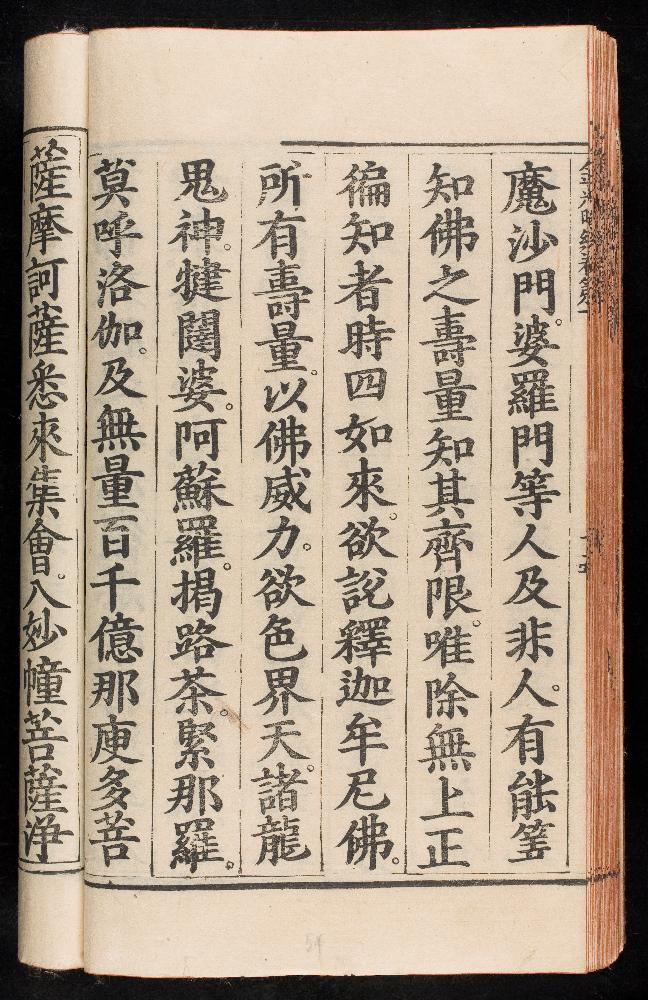 魔沙門。婆羅門等人及非人。有能筭
知佛之壽量知其齊限。唯除無上正
徧知者時四如來。欲說釋迦牟尼佛。
所有壽量。以佛威力。欲色界天。諸龍
鬼神。犍闥婆。阿蘇羅。揭路茶。緊那羅。
莫呼洛伽。及無量百千億那庾多菩
薩摩訶薩悉來集會。入妙幢菩薩淨